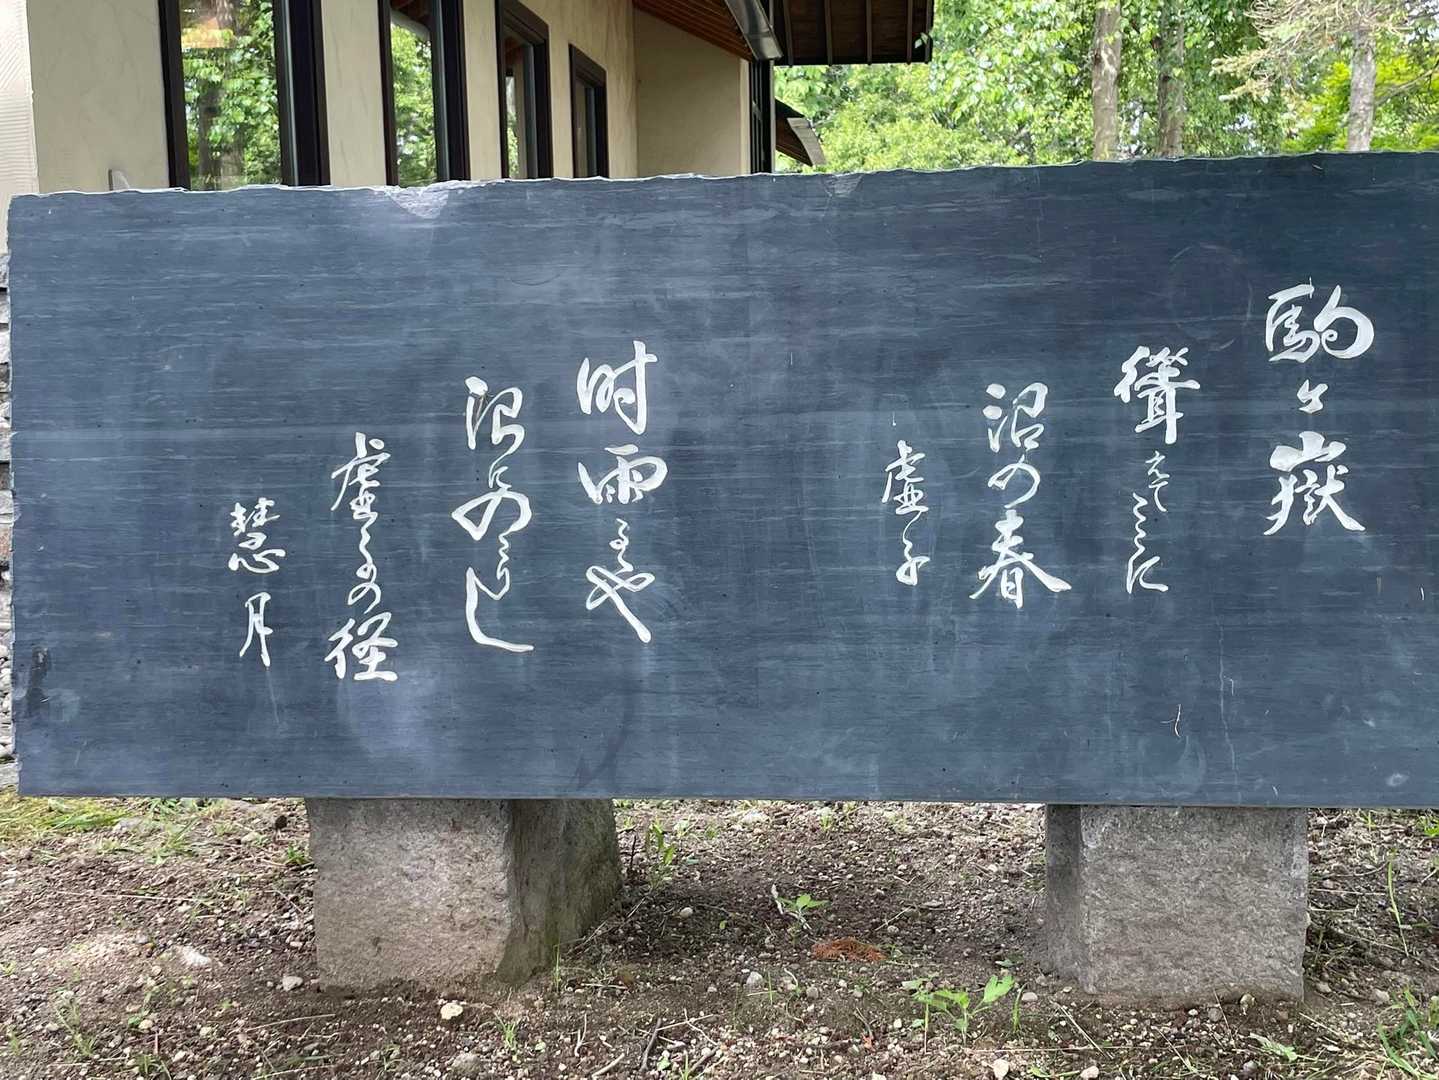 駒ヶ嶽
聳えてここに
沼の春
虚子
時雨るや
沼にのこりし
虚子の径
慧月